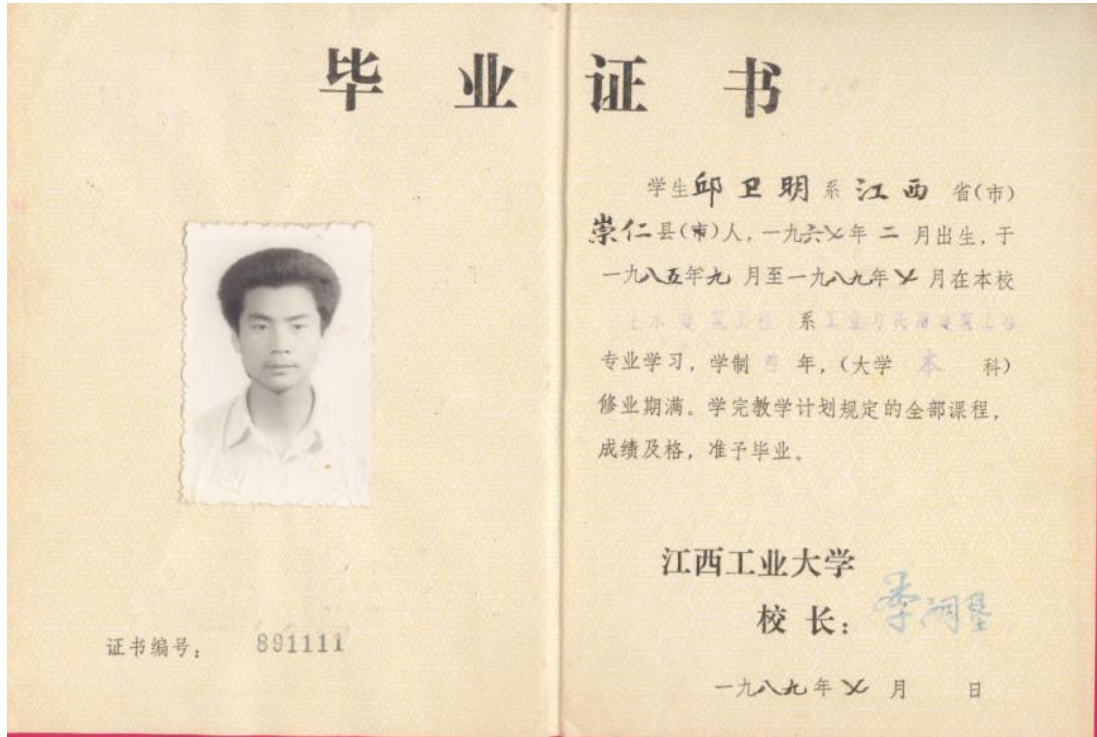 毕业证书
学生邱卫明系江西省(市)
崇仁县(市)人,一九六七年二月出生,于
一九八五年九月至一九八九年七月在本校
土木建筑工程系工业与民用建筑工程
专业学习,学制四年,(大学本科)
修业期满。学完教学计划规定的全部课程,
成绩及格,准予毕业。
江西工业大学
校长:
证书编号: 891111
一九八九年七月 日